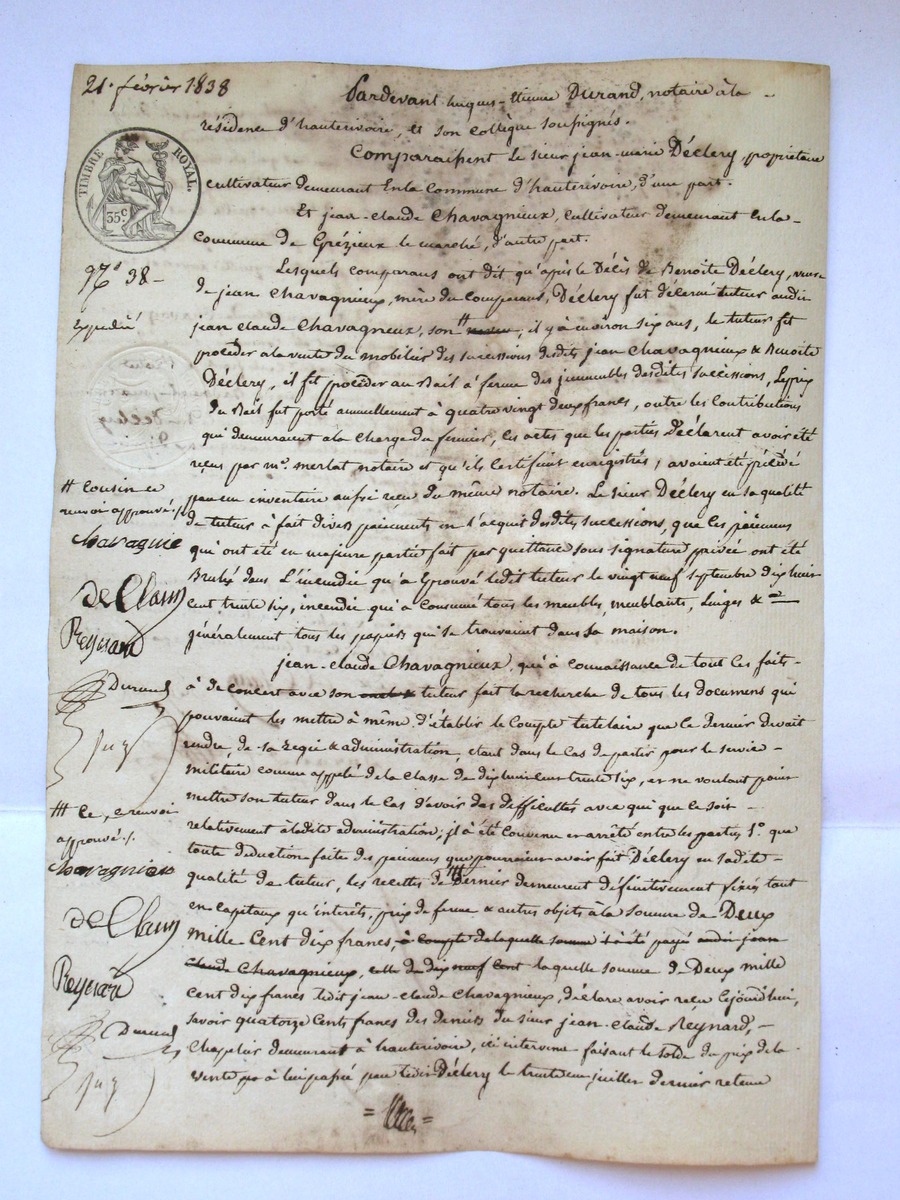 21. février 1838
Pardevant hugues-Etienne Durand, notaire à la
résidence d'hauterivoire, et son collègue soussignés.
Comparaissent Le sieur jean-marie Déclery, propriétaire
cultivateur demeurant En la Commune d'hauterivoire, d'une part.
Et jean-claude Chavagnieux, cultivateur demeurant en la
commune de Grézieux le marché, d'autre part.
Lesquels comparans ont dit qu'après le Décès de Benoite Déclery, veuve
de jean Chavagnieux, mère du comparans, Déclery fut décerné tuteur audit
jean claude Chavagneux, son # il y a environ six ans, le tuteur fit
procéder a la vente du mobilier des successions desdits jean Chavagnieux & Benoite
Déclery, il fit procéder au Bail à ferme des immeubles desdites successions, Le prix
du Bail fut porté annuellement à quatre vingt deux francs, outre les Contributions
qui demeuraient à la charge du fermier, les actes que les parties Déclarent avoir été
reçus par me. merlat notaire et qu'ils Certifient enregistrés, avaient été précédé
par un inventaire aussi reçu du même notaire. Le sieur Déclery en sa qualité
de tuteur à fait divers paiements en l'acquit desdites successions, que les paiemens
qui ont été en majeure partie fait par quittance sous signature privée ont été
Brulés dans L'incendie qu'a éprouvé ledit tuteur le vingt neuf septembre dix huit
cent trente six, incendie qui a consumé tous les meubles, meublants, Linges &
généralement tous les papiers qui se trouvaient dans sa maison.
jean-claude Chavagnieux, qui à connaissance de tout ces faits
à de concert avec son tuteur fait la recherche de tous les documens qui
pouvaient les mettre à même d'établir le Compte tutelaire que ce dernier Devait
rendre, de sa Regie & administration, étant dans le Cas de partir pour le service
militaire comme appelé de la classe de dix huit cent trente six, et ne voulant point
mettre son tuteur dans le Cas d'avoir des difficultés avec qui que ce soit
relativement à ladite administration; il à été Convenu et arrêté entre les parties 1.° que
toute déduction faite des paiemens que pourrait avoir fait Déclery en sadite
qualité de tuteur, les recettes de ### Dernier demeurent définitivement fixés tant
en capitaux qu'interêts, prix de ferme & autres objets à la somme de Deux
mille Cent dix francs, à compte de laquelle somme il a été payé audit jean
claude Chavagnieux, celle de dix neuf cent laquelle somme de Deux mille
cent dix francs ledit jean-claude Chavagnieux, déclare avoir reçu cejourd'hui,
savoir quatorze Cents francs des deniers du sieur jean-Claude Reynard,
Chapelier demeurant à hauterivoire, ici intervenu faisant le solde du prix de la
vente à lui passée par ledit Déclery le trente un juillet dernier retenu
TIMBRE ROYAL.
35c
N° 38
Expédié
# cousin ce
renvoi approuvé./.
Chavagnie
Reynard
Durand
### ce, renvoi
approuvé./.
Chavagnieux
Reynard
Durand